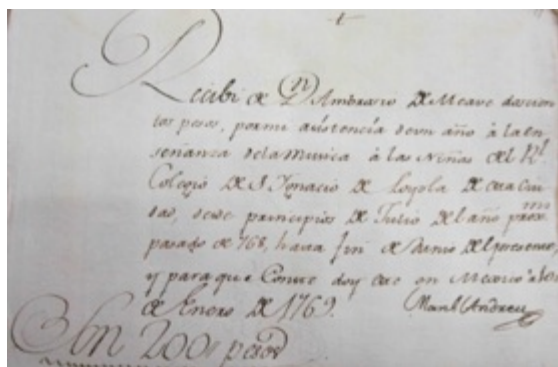 Recibi de Dn Ambrosio de Meave doscien
tos pesos, por mi asistencia de un año à la en
señanza de la Musica à las Niñas del Rl
Colegio de S Ignacio de Loyola de esta Ciu
dad, desde principios de Julio del año proxmo
pasado de 768, hasta fin de Junio del presente,
y para que Conste doy este en Mexico à
de Enero de 1769. Manl Andreu
Son 200 pesos